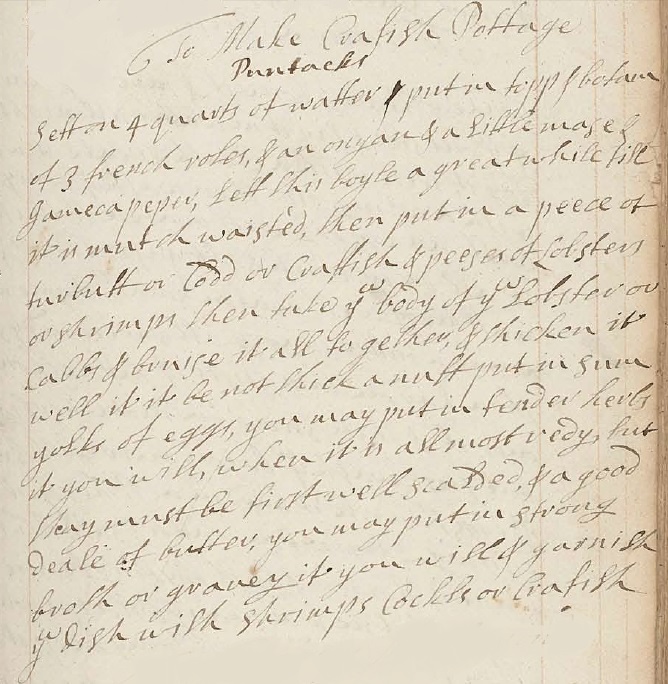 To Make Crafish Pottage
Puntacks
Sett on 4 quarts of watter put in topp & botam
of 3 french roles, & an onyan & a little mase &
Jameca peper, Lett this boyle a great while till
it is mutch waisted, then put in a peece of
turbutt or Codd or Craffish & peeses of Lobsters
or shrimps then take ye body of ye Lobster or
Cabbs & bruise it all to gether, & thicken it
well if it be not thick a nuff put in sum
yolks of eggs, you may put in tender herbs
if you will, when it is allmost redy, but
thay must be first well scalded, & a good
deale of butter, you may put in strong
broth or gravey if you will & garnish
ye dish with shrimps Cockls or Crafish